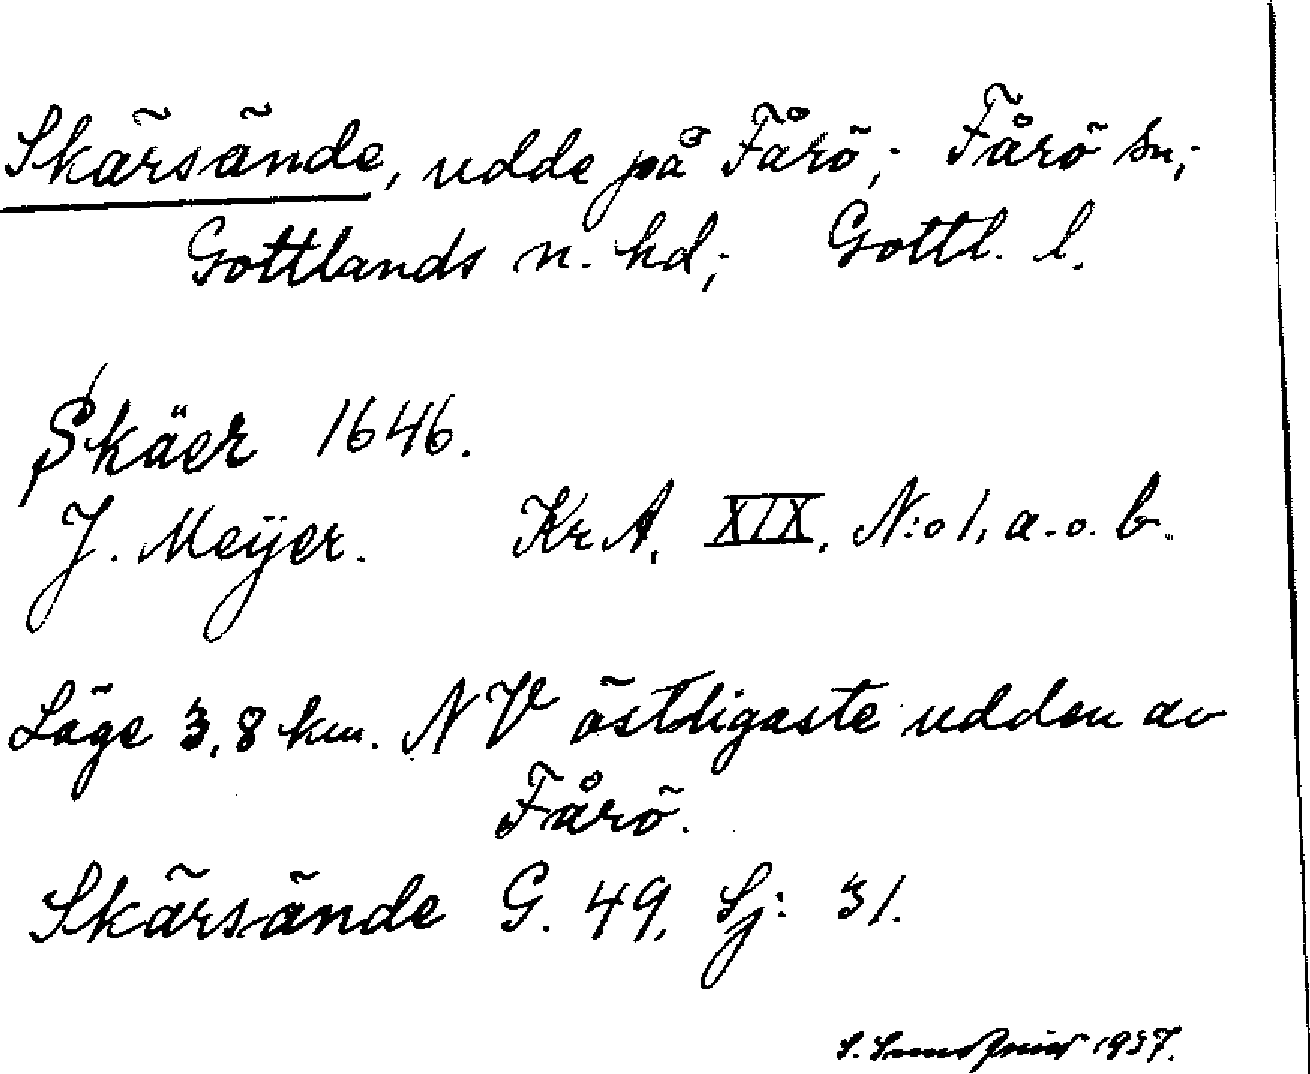 Skärsände, udde på Fårö; Fårö sn;
Gottlands n. hd; Gottl. l.
Skäer 1646.
J. Meÿer. Kr A. XIX. N:o 1. a. o. b.
Läge 3,8 km. NV östligaste udden av
Fårö.
Skärsände G. 49. Sj: 31.
S. 1937.